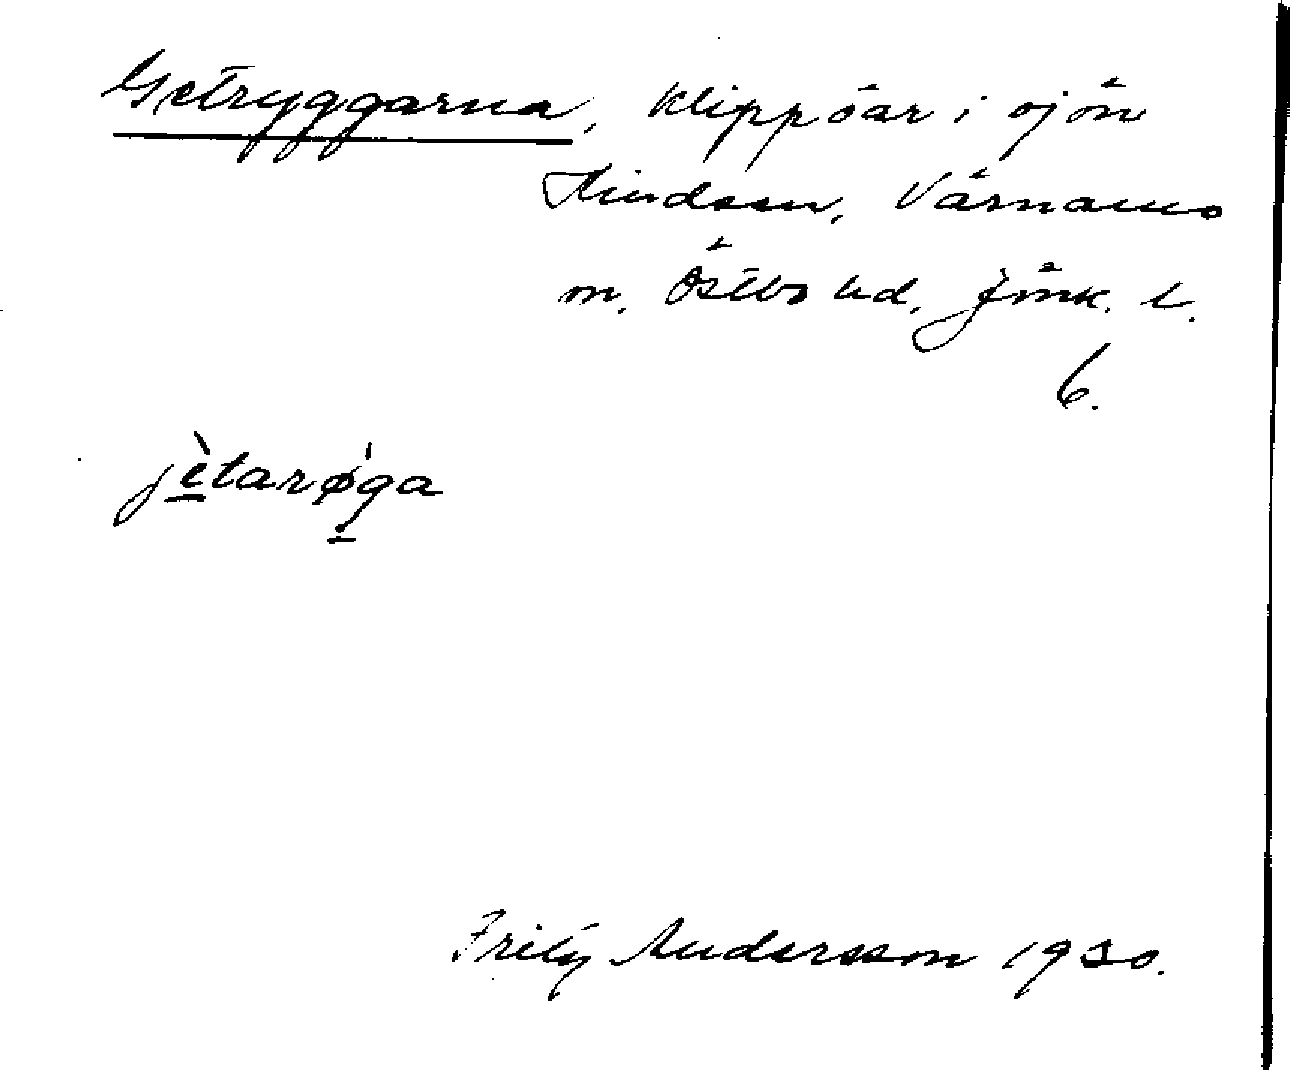 Getryggarna, klippöar i sjön
Hindsen, Värnamo
m. Östbo hd. Jönk. l.
6.
jètarǿ̱ga
Fritz Andersson 1930.